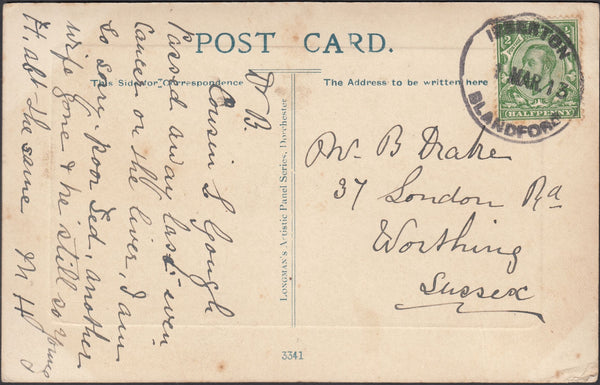 POST CARD.
This Side for Correspondence
The Address to be written here
D B.
Cousin L Gough
Passed away last even
Cancer on the liver, I am
So Sorry poor Ted, another
wife gone & he still so young
H. abt the same M H
LONGMAN'S Artistic Panel Series, Dorchester
3341
IBBERTON
MAR. 13
BLANDFORD
HALFPENNY
Mr. B Drake
37 London Rd
Worthing
Sussex